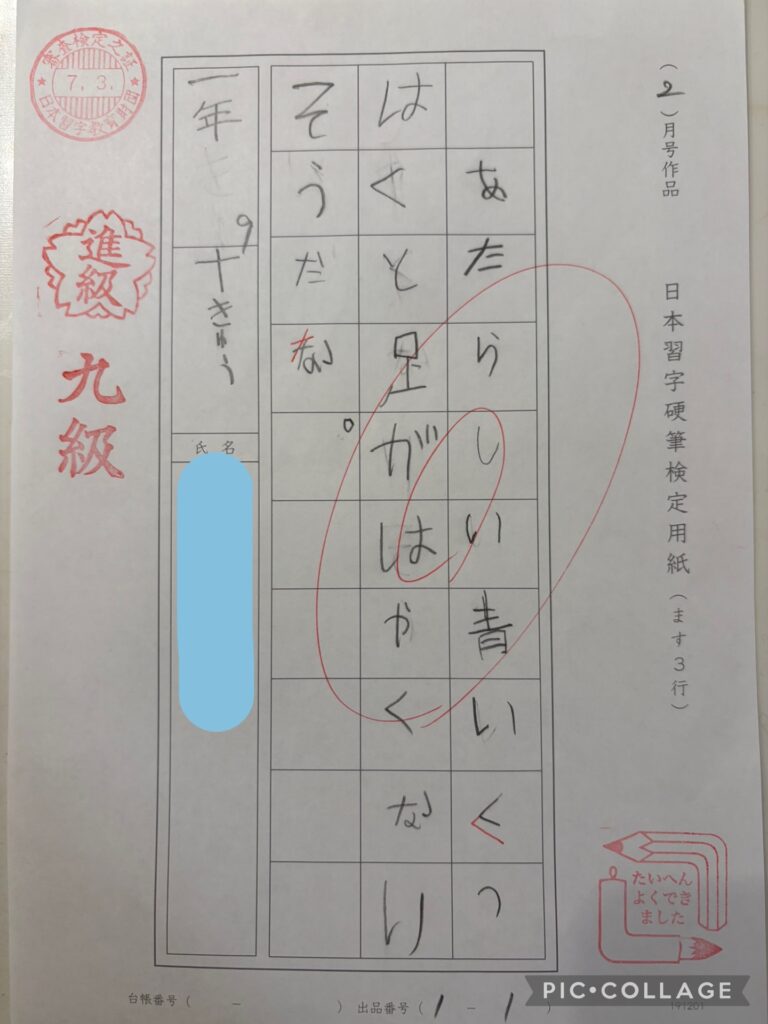 (2)月号作品 日本習字硬筆検定用紙(ます3行)
あたらしい青いくつ
はくと足がはやくなり
そうだな。
一年
9
十きゅう
氏名
審査検定之証
7.3.
日本習字教育財団
進級
九級
たいへん
よくでき
ました
台帳番号( - ) 出品番号(1-1)
191201
PIC•COLLAGE